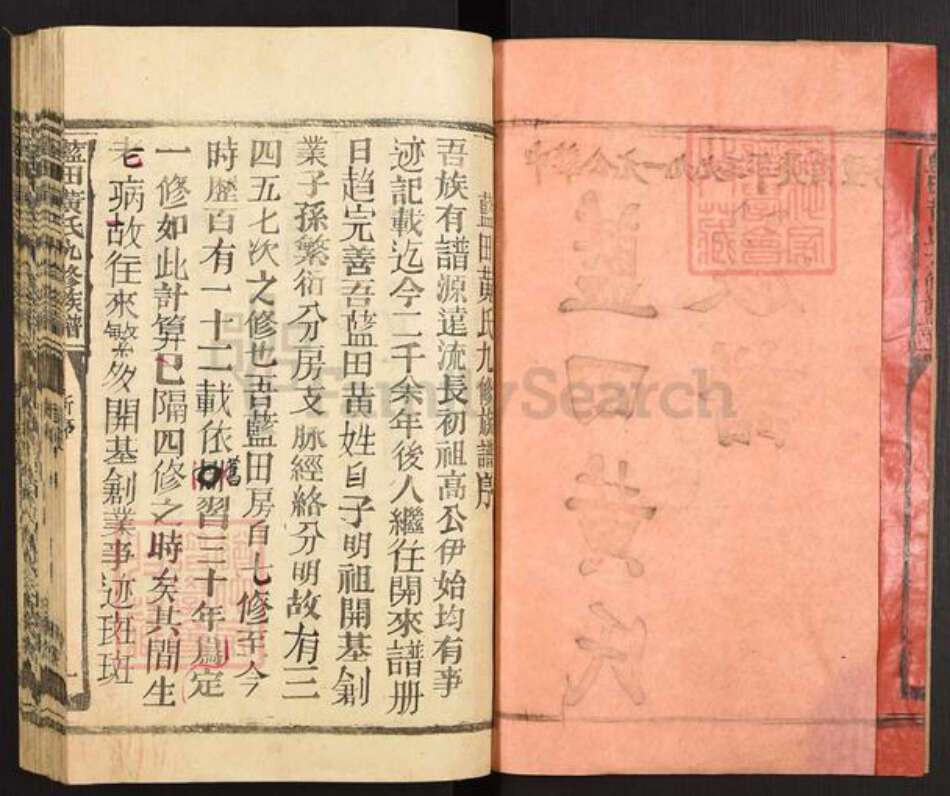 藍田黃氏九修族譜序
吾族有譜源遠流長初祖高公伊始均有事
迹記載迄今二千余年後人繼往開來譜册
日趨完善吾藍田黃姓自子明祖開基創
業子孫繁衍分房支脈經絡分明故有三
四五七次之修也吾藍田房自七修至今
時歷百有一十二載依舊習三十年爲定
一修如此計算已隔四修之時矣其間生
老病故往來繁多開基創業事迹斑斑
藍田黃氏九修族譜
新序
一
藍田黃氏
FamilySearch